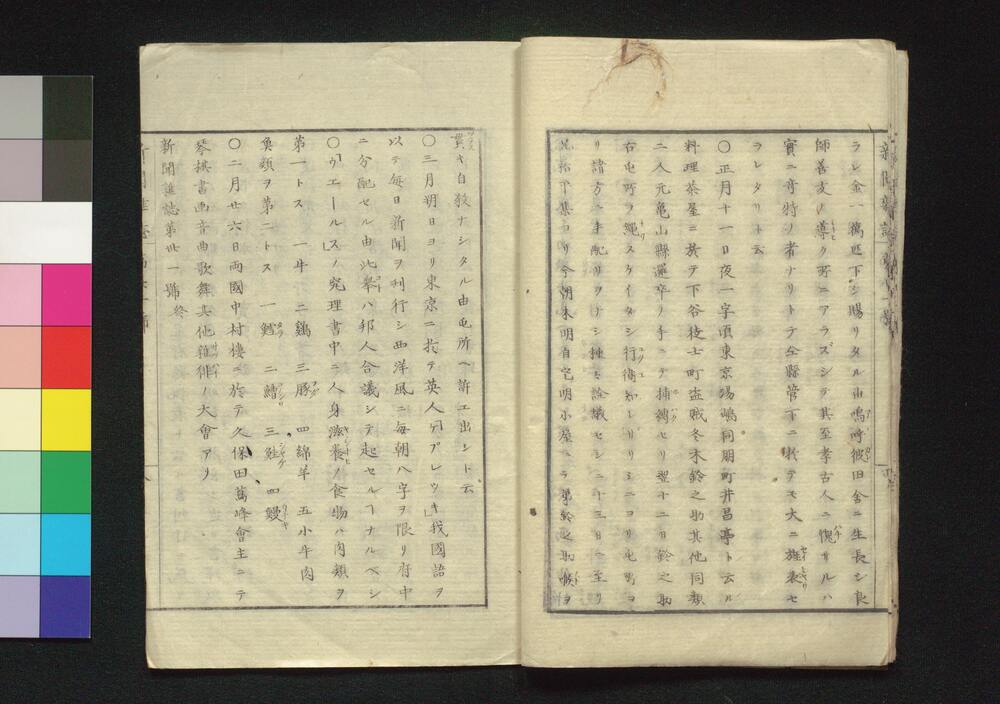 ラレ金一萬疋下シ賜リタル由嗚呼彼田舎ニ生長シ良
師善友ノ導ク所ニアラズシテ其至孝古人ニ愧サルハ
實ニ奇特ノ者ナリトテ全縣管下ニ於テモ大ニ旌表セ
ラレタリト云
〇正月十一日夜一字頃東京湯嶋同朋町井昌亭ト云ル
料理茶屋ニ於テ下谷徒士町盗賊冬木鈴之助其他同類
二人元亀山縣邏卒ノ手ニテ捕縛セリ翌十二日鈴之助
右屯所ヲ縄スケイタシ行衞知レサリシニヨリ屯所ヨ
リ諸方ニ手配リヲナシ種々詮議セシニ十三日ニ至リ
今朝未明自宅明小屋ニテ鈴之助喉ヲ
貫キ自殺ナシタル由屯所ヘ訴エ出シト云
〇三月朔日ヨリ東京ニ於テ英人「プレツキ」我國語ヲ
以テ毎日新聞ヲ刊行シ西洋風ニ毎朝八字ヲ限リ府中
ニ分配セル由此擧ハ邦人合議シテ起セルナルベシ
〇「ウエールス」ノ究理書中ニ人身滋養ノ食物ハ肉類ヲ
第一トス 一牛 二鷄 三豚 四綿羊 五小牛肉
魚類ヲ第二トス 一鱈 二鰌 三鮭 四鰻
〇二月廿六日両國中村樓ニ於テ久保田萬峰會主ニテ
琴棋書画音曲歌舞其他雜俳ノ大會アリ
新聞雜誌第卅一號 終